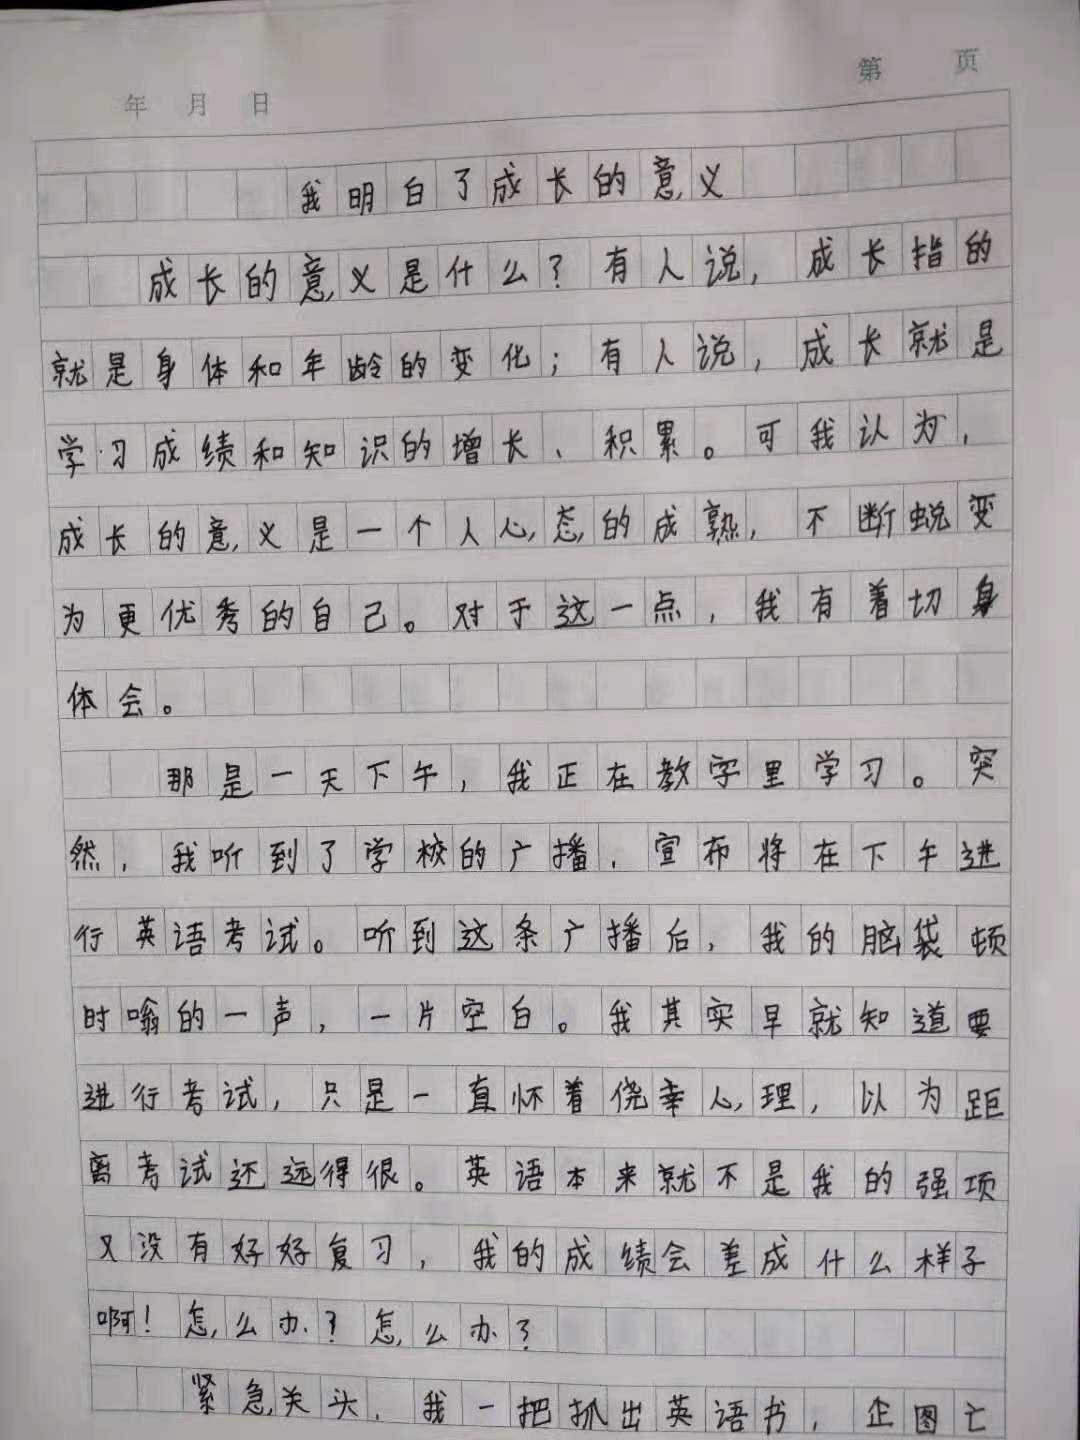 第 页
年 月 日
我明白了成长的意义
成长的意义是什么?有人说,成长指的
就是身体和年龄的变化;有人说,成长就是
学习成绩和知识的增长、积累。可我认为,
成长的意义是一个人心态的成熟,不断蜕变
为更优秀的自己。对于这一点,我有着切身
体会。
那是一天下午,我正在教字里学习。突
然,我听到了学校的广播,宣布将在下午进
行英语考试。听到这条广播后,我的脑袋顿
时嗡的一声,一片空白。我其实早就知道要
进行考试,只是一直怀着侥幸心理,以为距
离考试还远得很。英语本来就不是我的强项
又没有好好复习,我的成绩会差成什么样子
啊!怎么办?怎么办?
紧急关头,我一把抓出英语书,企图亡